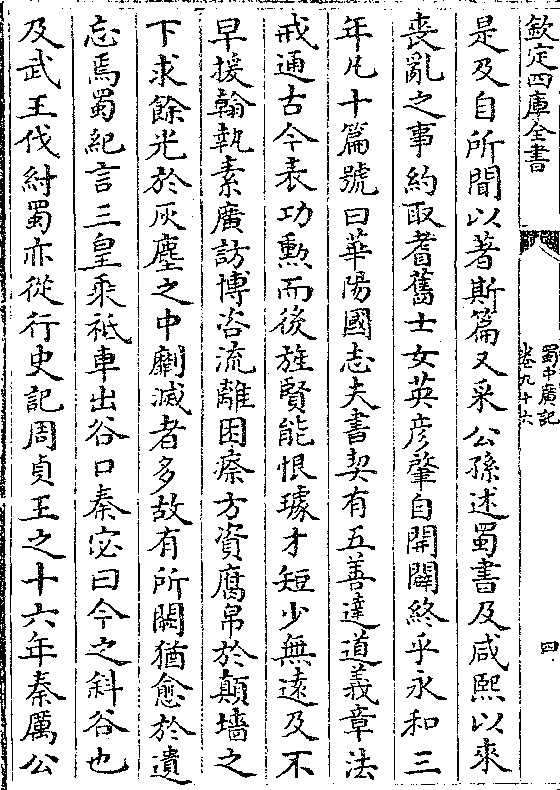 欽定四庫全書
蜀中廣記
卷九十六
四
是及自所聞以著斯篇又采公孫述蜀書及咸熙以來
喪亂之事約取耆舊士女英彦肇自開闢終乎永和三
年凡十篇號曰華陽國志夫書契有五善達道義章法
戒通古今表功勲而後旌賢能恨璩才短少無逺及不
早援翰執素廣訪博咨流離困瘵方資腐帛於顛墻之
下求餘光於灰塵之中劘滅者多故有所闕猶愈於遺
忘焉蜀紀言三皇乘祗車出谷口秦宓曰今之斜谷也
及武王伐紂蜀亦從行史記周貞王之十六年秦厲公